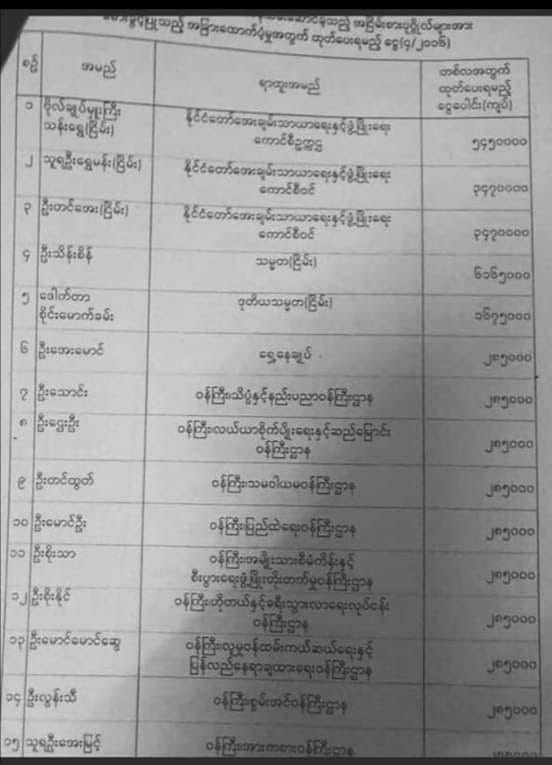 ဆောင်ခဲ့သည့် အငြိမ်းစားပုဂ္ဂိုလ်များအား
ခံစားခွင့်ပြုသည့် အခြားထောက်ပံ့မှုအတွက် ထုတ်ပေးရမည့် ငွေ(၄/၂၀၁၆)
စဉ် အမည် ရာထူးအမည် တစ်လအတွက် ထုတ်ပေးရမည့် ငွေပေါင်း(ကျပ်)
၁ ဗိုလ်ချုပ်မှူးကြီး နိုင်ငံတော်အေးချမ်းသာယာရေးနှင့်ဖွံ့ဖြိုးရေး
သန်းရွှေ(ငြိမ်း) ကောင်စီဥက္ကဋ္ဌ ၅၄၅၀၀၀၀
၂ သူရဦးရွှေမန်း(ငြိမ်း) နိုင်ငံတော်အေးချမ်းသာယာရေးနှင့်ဖွံ့ဖြိုးရေး
ကောင်စီဝင် ၃၄၇၀၀၀၀
၃ ဦးတင်အေး(ငြိမ်း) နိုင်ငံတော်အေးချမ်းသာယာရေးနှင့်ဖွံ့ဖြိုးရေး
ကောင်စီဝင် ၃၄၇၀၀၀၀
၄ ဦးသိန်းစိန် သမ္မတ(ငြိမ်း) ၆၁၆၅၀၀၀
၅ ဒေါက်တာ ဒုတိယသမ္မတ(ငြိမ်း)
စိုင်းမောက်ခမ်း ၁၆၇၅၀၀၀
၆ ဦးအေးမောင် ရှေ့နေချုပ် ၂၈၅၀၀၀
၇ ဦးသောင်း ဝန်ကြီး၊သိပ္ပံနှင့်နည်းပညာဝန်ကြီးဌာန ၂၈၅၀၀၀
၈ ဦးဌေးဦး ဝန်ကြီး၊လယ်ယာစိုက်ပျိုးရေးနှင့်ဆည်မြောင်း
ဝန်ကြီးဌာန ၂၈၅၀၀၀
၉ ဦးတင်ထွတ် ဝန်ကြီး၊သမဝါယမဝန်ကြီးဌာန ၂၈၅၀၀၀
၁၀ ဦးမောင်ဦး ဝန်ကြီး၊ပြည်ထဲရေးဝန်ကြီးဌာန ၂၈၅၀၀၀
၁၁ ဦးစိုးသာ ဝန်ကြီး၊အမျိုးသားစီမံကိန်းနှင့်
စီးပွားရေးဖွံ့ဖြိုးတိုးတက်မှုဝန်ကြီးဌာန ၂၈၅၀၀၀
၁၂ ဦးစိုးနိုင် ဝန်ကြီး၊ဟိုတယ်နှင့်ခရီးသွားလာရေးလုပ်ငန်း
ဝန်ကြီးဌာန ၂၈၅၀၀၀
၁၃ ဦးမောင်မောင်ဆွေ ဝန်ကြီး၊လူမှုဝန်ထမ်းကယ်ဆယ်ရေးနှင့်
ပြန်လည်နေရာချထားရေးဝန်ကြီးဌာန ၂၈၅၀၀၀
၁၄ ဦးလွန်းသီ ဝန်ကြီး၊စွမ်းအင်ဝန်ကြီးဌာန ၂၈၅၀၀၀
၁၅ သူရဦးအေးမြင့် ဝန်ကြီး၊အားကစားဝန်ကြီးဌာန